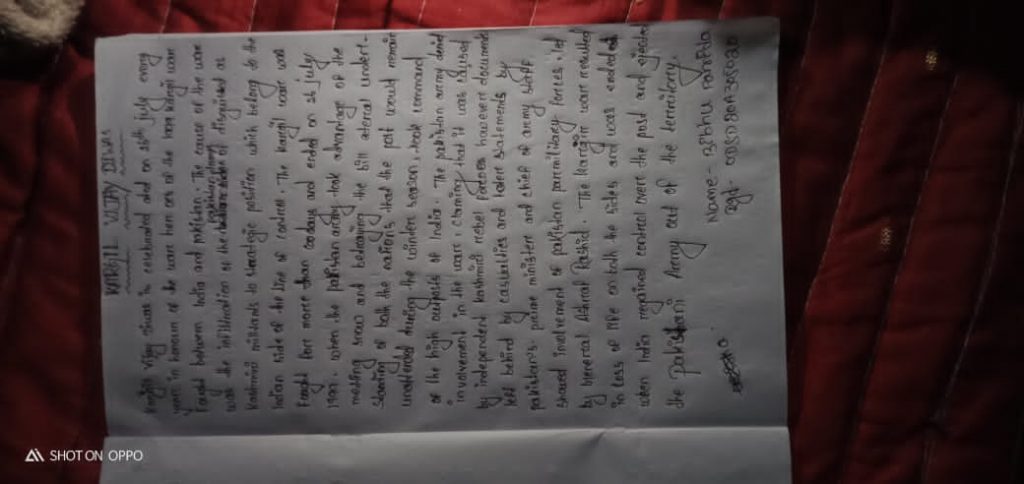 KARGIL VIJAY DIWAS
Kargil vijay diwas is celebrated on 26th july every
year in honour of the war heroes of the kargil war
fought between India and pakistan. The cause of the war
was the infiltration of the disguised as
kashmiri militants to strategic position which belong to the
Indian side of the line of control. The kargil war was
fought for more than 60 days and ended on 26 july
1999. when the pakistan army took advantage of the
melting snow and betraying the bilateral under-
standing of both the nations that the post would remain
unattended during the winter season, took command
of the high outposts of India. The pakistan army denied
involvement in the war, claiming that it was caused
by independent kashmiri rebel forces however documents
left behind by casualties and later statements by
pakistan's prime minister and chief of army staff
showed involvement of pakistan paramilitary forces led
by General Ashraf Rashid. The kargil war resulted
in loss of life on both the sides and was ended
when India regained control over the post and ejected
the pakistani Army out of the territory.
Name-
regd-
SHOT ON OPPO